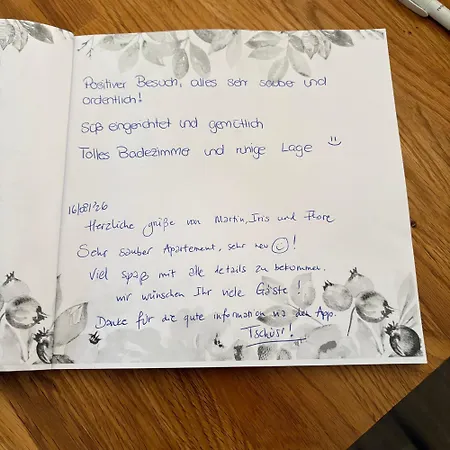 Positiver Besuch, alles sehr sauber und
ordentlich!
Süß eingerichtet und gemütlich
Tolles Badezimmer und ruhige Lage
Herzliche grüße von Martin, Iris und
Sehr sauber Apartement, sehr neu !
Viel spaß mit alle details zu bekommen.
mir wünschen Ihr viele Gäste !
Danke für die gute information via den App.
Tschüss!